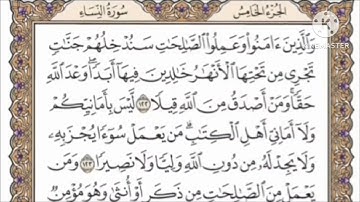 الجزء الخامس
سورة النساء
KINEMASTER
وَٱلَّذِينَ ءَامَنُوا۟ وَعَمِلُوا۟ ٱلصَّٰلِحَٰتِ سَنُدْخِلُهُمْ جَنَّٰتٍ
تَجْرِى مِن تَحْتِهَا ٱلْأَنْهَٰرُ خَٰلِدِينَ فِيهَآ أَبَدًا ۖ وَعْدَ ٱللَّهِ
حَقًّا ۚ وَمَنْ أَصْدَقُ مِنَ ٱللَّهِ قِيلًا ١٢٢ لَّيْسَ بِأَمَانِيِّكُمْ
وَلَآ أَمَانِىِّ أَهْلِ ٱلْكِتَٰبِ ۗ مَن يَعْمَلْ سُوٓءًا يُجْزَ بِهِۦ
وَلَا يَجِدْ لَهُۥ مِن دُونِ ٱللَّهِ وَلِيًّا وَلَا نَصِيرًا ١٢٣ وَمَن
يَعْمَلْ مِنَ ٱلصَّٰلِحَٰتِ مِن ذَكَرٍ أَوْ أُنثَىٰ وَهُوَ مُؤْمِنٌ